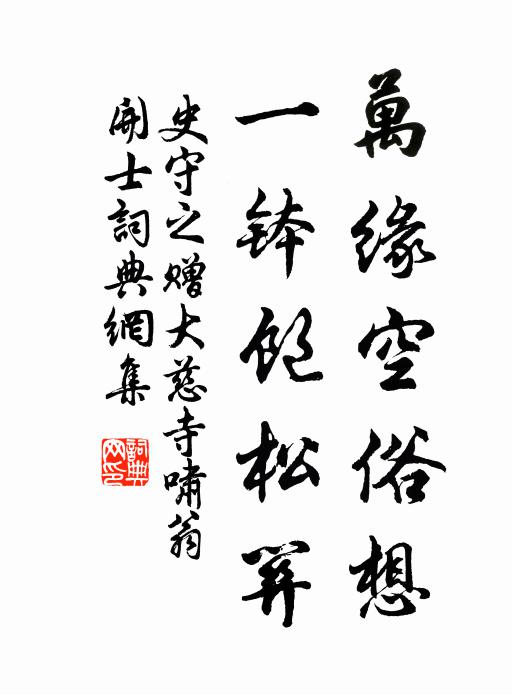 萬緣空俗想
一鉢飽松關
史守之贈大慈寺嘯翁
開士詞典網集
詞典
网印